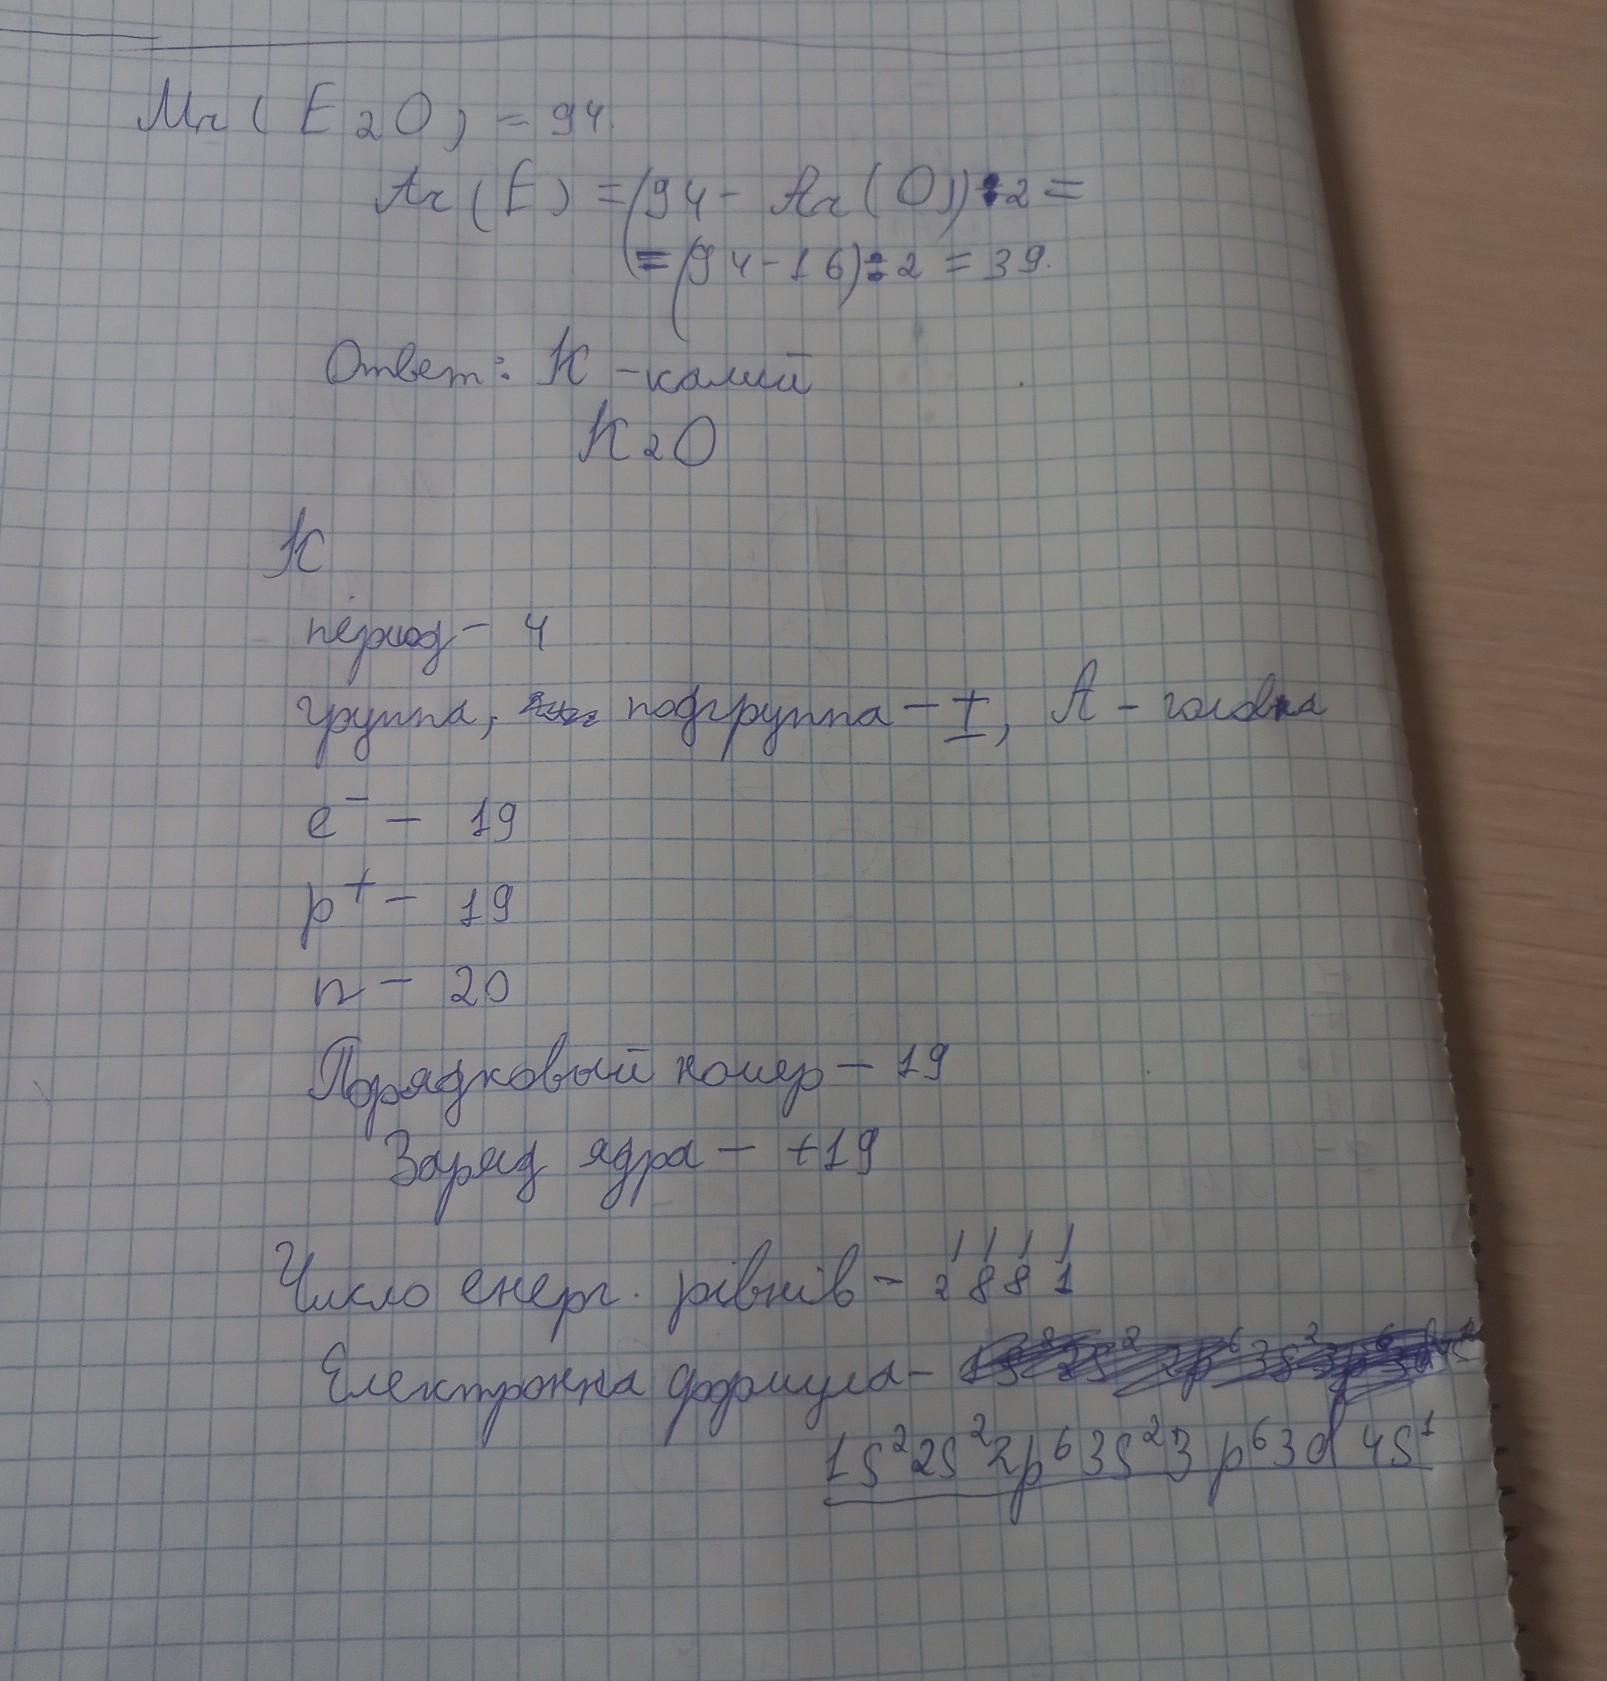 Mr(E2O) = 94.
Ar(E) = (94 - Ar(O)):2 =
= (94-16):2 = 39.
Ответ: K - калий
K2O
K
період - 4
группа, подгруппа - I, А - головна
e⁻ - 19
p⁺ - 19
n - 20
Порядковый номер - 19
Заряд ядра - +19
Число енерг. рівнів - 2 8 8 1
Електронна формула -
1s²2s²2p⁶3s²3p⁶3d 4s¹